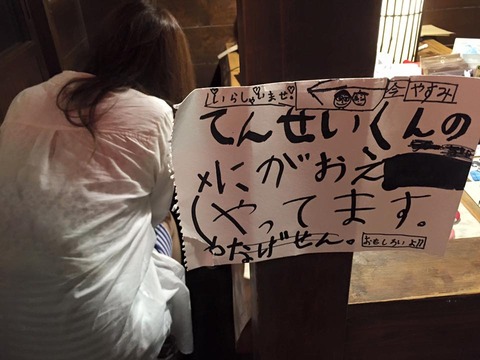 いらしゃいませ! 今やすみ
てんせいくんの
にがおえ
やってます。
やなげせん。 おもしろいよ!!